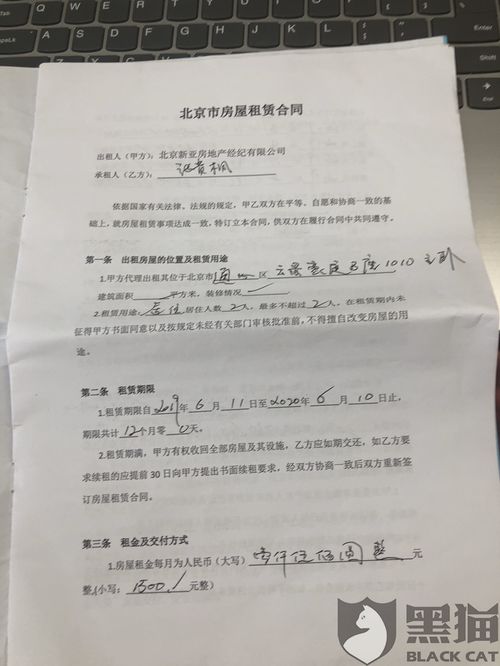 北京市房屋租赁合同
出租人（甲方）：北京新亚房地产经纪有限公司
承租人（乙方）：
依据国家有关法律、法规的规定，甲乙双方在平等、自愿和协商一致的基
础上，就房屋租赁事项达成一致，特订立本合同，供双方在履行合同中共同遵守。
第一条 出租房屋的位置及租赁用途
1.甲方代理出租其位于北京市通州区 座1010 主卧
建筑面积 平方米，装修情况
2.租赁用途：居住 居住人数2人，最多不超过2人。在租赁期内未
征得甲方书面同意以及按规定未经有关部门审核批准前，不得擅自改变房屋的用
途。
第二条 租赁期限
1.租赁期限自2019年6月11日至2020年6月10日止，
期限共计12个月零0天。
2.租赁期满，甲方有权收回全部房屋及其设施，乙方应如期交还，如乙方要
求续租的应提前30日向甲方提出书面续租要求，经双方协商一致后双方重新签
订房屋租赁合同。
第三条 租金及交付方式
1.房屋租金每月为人民币（大写）壹仟伍佰圆整元
整,(小写：1500/元整）
黑猫
BLACK CAT